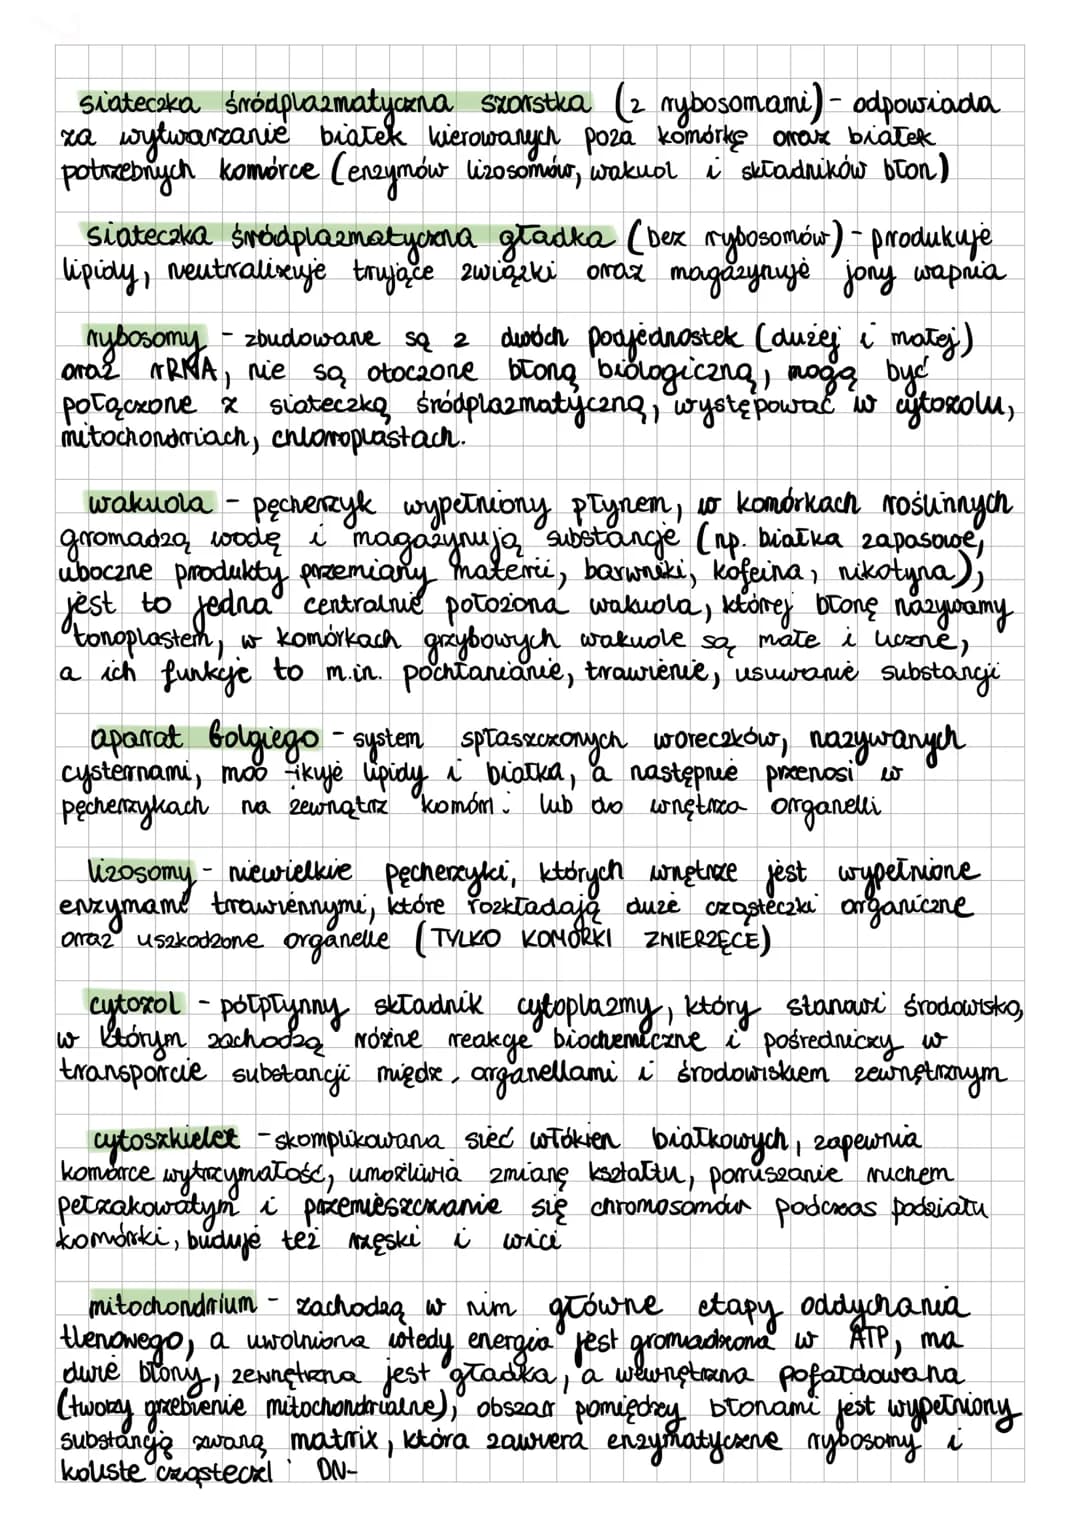 siateczka śródplazmatyczna szorstka (z rybosomami) - odpowiada
za wytwarzanie białek kierowanych poza komórkę oraz białek
potrzebnych komórce (enzymów lizosomów, wakuol i składników błon)
siateczka śródplazmatyczna gładka (bez rybosomów) - produkuje
lipidy, neutralizuje trujące związki oraz magazynuje jony wapnia
rybosomy - zbudowane są z dwóch podjednostek (dużej i małej)
oraz rRNA, nie są otoczone błoną biologiczną, mogą być
połączone z siateczką śródplazmatyczną, występować w cytozolu,
mitochondriach, chloroplastach.
wakuola - pęcherzyk wypełniony płynem, w komórkach roślinnych
gromadzą wodę i magazynują substancje (np. białka zapasowe,
uboczne produkty przemiany materii, barwniki, kofeina, nikotyna),
jest to jedna centralnie położona wakuola, której błonę nazywamy
tonoplastem, w komórkach grzybowych wakuole są małe i liczne,
a ich funkcje to m.in. pochłanianie, trawienie, usuwanie substancji
aparat Golgiego - system spłaszczonych woreczków, nazywanych
cysternami, lipidy i białka, a następnie przenosi w
pęcherzykach na zewnątrz lub do wnętrza organelli
lizosomy - niewielkie pęcherzyki, których wnętrze jest wypełnione
enzymami trawiennymi, które rozkładają duże cząsteczki organiczne
oraz uszkodzone organelle (TYLKO KOMÓRKI ZWIERZĘCE)
cytozol - półpłynny składnik cytoplazmy, który stanowi środowisko,
w którym zachodzą różne reakcje biochemiczne i pośredniczy w
transporcie substancji organellami i środowiskiem zewnętrznym
cytoszkielet - skomplikowana sieć włókien białkowych, zapewnia
komórce wytrzymałość, umożliwia zmianę kształtu, poruszanie ruchem
pełzakowatym i przemieszczanie się chromosomów podczas podziału
komórki, buduje też rzęski i wici
mitochondrium - zachodzą w nim główne etapy oddychania
tlenowego, a uwolniona wtedy energia jest gromadzona w ATP, ma
dwie błony, zewnętrzna jest gładka, a wewnętrzna pofałdowana
(tworzy grzebienie mitochondrialne), obszar pomiędzy błonami jest wypełniony
substancją zwaną matrix, która zawiera enzymatyczne rybosomy i
koliste